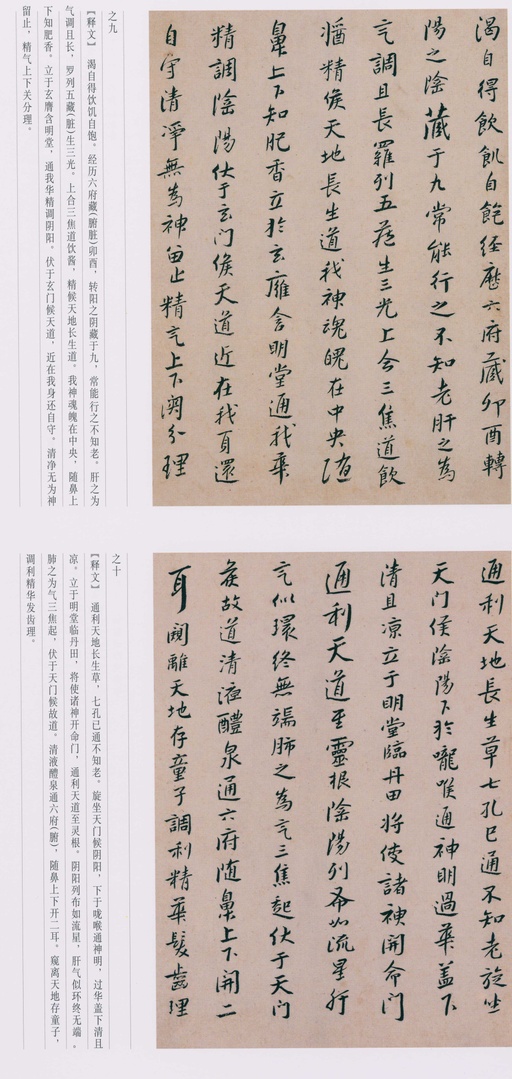 渴自得飲飢自飽經歷六府藏卯酉轉
陽之陰藏于九常能行之不知老肝之為
气調且長羅列五藏生三光上合三焦道飲
醬精候天地長生道我神魂魄在中央隨
鼻上下知肥香立於玄膺含明堂通我華
精調陰陽伏于玄門候天道近在我身還
自守清淨無為神留止精气上下關分理
之九
【释文】 渴自得饮饥自饱。经历六府藏(腑脏)卯酉，转阳之阴藏于九，常能行之不知老。肝之为
气调且长，罗列五藏(脏)生三光。上合三焦道饮酱，精候天地长生道。我神魂魄在中央，随鼻上
下知肥香。立于玄膺含明堂，通我华精调阴阳。伏于玄门候天道，近在我身还自守。清净无为神
留止，精气上下关分理。
通利天地長生草七孔已通不知老旋坐
天门候陰陽下於嚨喉通神明過華蓋下
清且涼立于明堂臨丹田将使諸神開命門
通利天道至靈根陰陽列布如流星肝
气似環終無端肺之為气三焦起伏于天门
候故道清液醴泉通六府随鼻上下開二
耳闚離天地存童子調利精華髮齒理
之十
【释文】 通利天地长生草，七孔已通不知老。旋坐天门候阴阳，下于咙喉通神明，过华盖下清且
凉。立于明堂临丹田，将使诸神开命门，通利天道至灵根。阴阳列布如流星，肝气似环终无端。
肺之为气三焦起，伏于天门候故道。清液醴泉通六府(腑)，随鼻上下开二耳。窥离天地存童子，
调利精华发齿理。